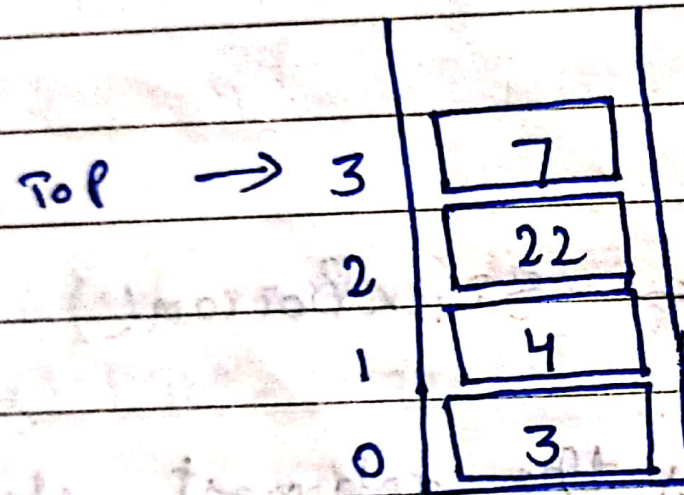 Top → 3 7
2 22
1 4
0 3